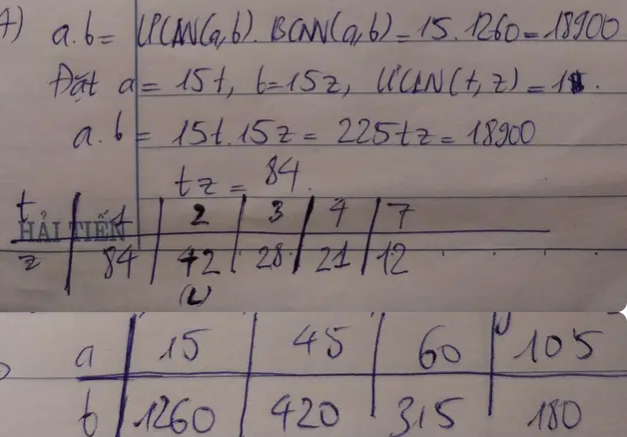 4) a.b = ƯCLN(a,b). BCNN(a,b) = 15.1260 = 18900
Đặt a = 15t, b = 15z, ƯCLN(t,z) = 1.
a.b = 15t.15z = 225tz = 18900
tz = 84.
t | 1 | 2 | 3 | 4 | 7
HẢI TIẾN
z | 84 | 42 | 28 | 21 | 12
(L)
a | 15 | 45 | 60 | 105
b | 1260 | 420 | 315 | 180